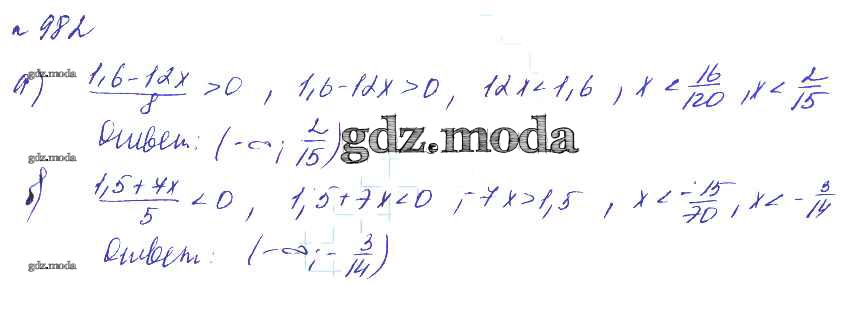 № 982
а) (1,6-12x)/8 > 0 , 1,6-12x>0 , 12x<1,6 , x < 16/120 , x < 2/15
gdz.moda
Ответ: (-∞; 2/15)
gdz.moda
gdz.moda
б) (1,5+7x)/5 < 0 , 1,5+7x<0 , -7x>1,5 , x < -15/70 , x < -3/14
Ответ: (-∞; -3/14)
gdz.moda